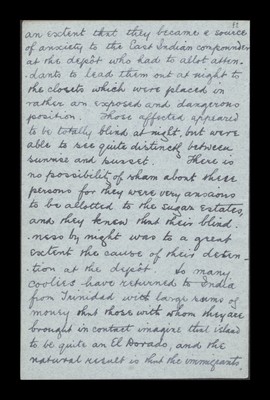 11
an extent that they became a source
of anxiety to the East Indian compounder
at the depôt who had to allot atten-
-dants to lead them out at night to
the closets which were placed in
rather an exposed and dangerous
position. Those affected appeared
to be totally blind at night, but were
able to see quite distinctly between
sunrise and sunset. There is
no possibility of sham about these
persons for they were very anxious
to be allotted to the sugar estates,
and they knew that their blind-
-ness by night was to a great
extent the cause of their deten-
-tion at the depôt. So many
coolies have returned to India
from Trinidad with large sums of
money that those with whom they are
brought in contact imagine that island
to be quite an El Dorado, and the
natural result is that the immigrants